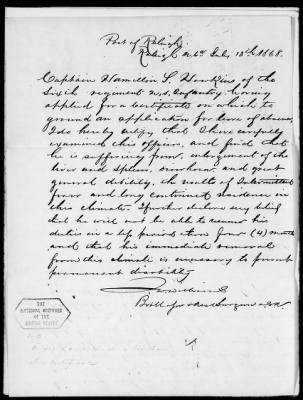 Post of Raleigh
Raleigh N.C. July 13th 1868.
Captain Hamilton S. Hawkins of the
Sixth regiment U.S. Infantry having
applied for a Certificate on which to
ground an application for leave of absence,
I do hereby certify that I have carefully
examined this officer and find that
he is suffering from enlargement of the
liver and spleen, and great
general debility, the results of Intermittent
fever and long continued residence in
this climate. I further declare my belief
that he will not be able to resume his
duties in a less period than four (4) months
and that his immediate removal
from this climate is necessary to prevent
permanent disability
Surgeon U.S.A.
THE
NATIONAL ARCHIVES
OF THE
UNITED STATES